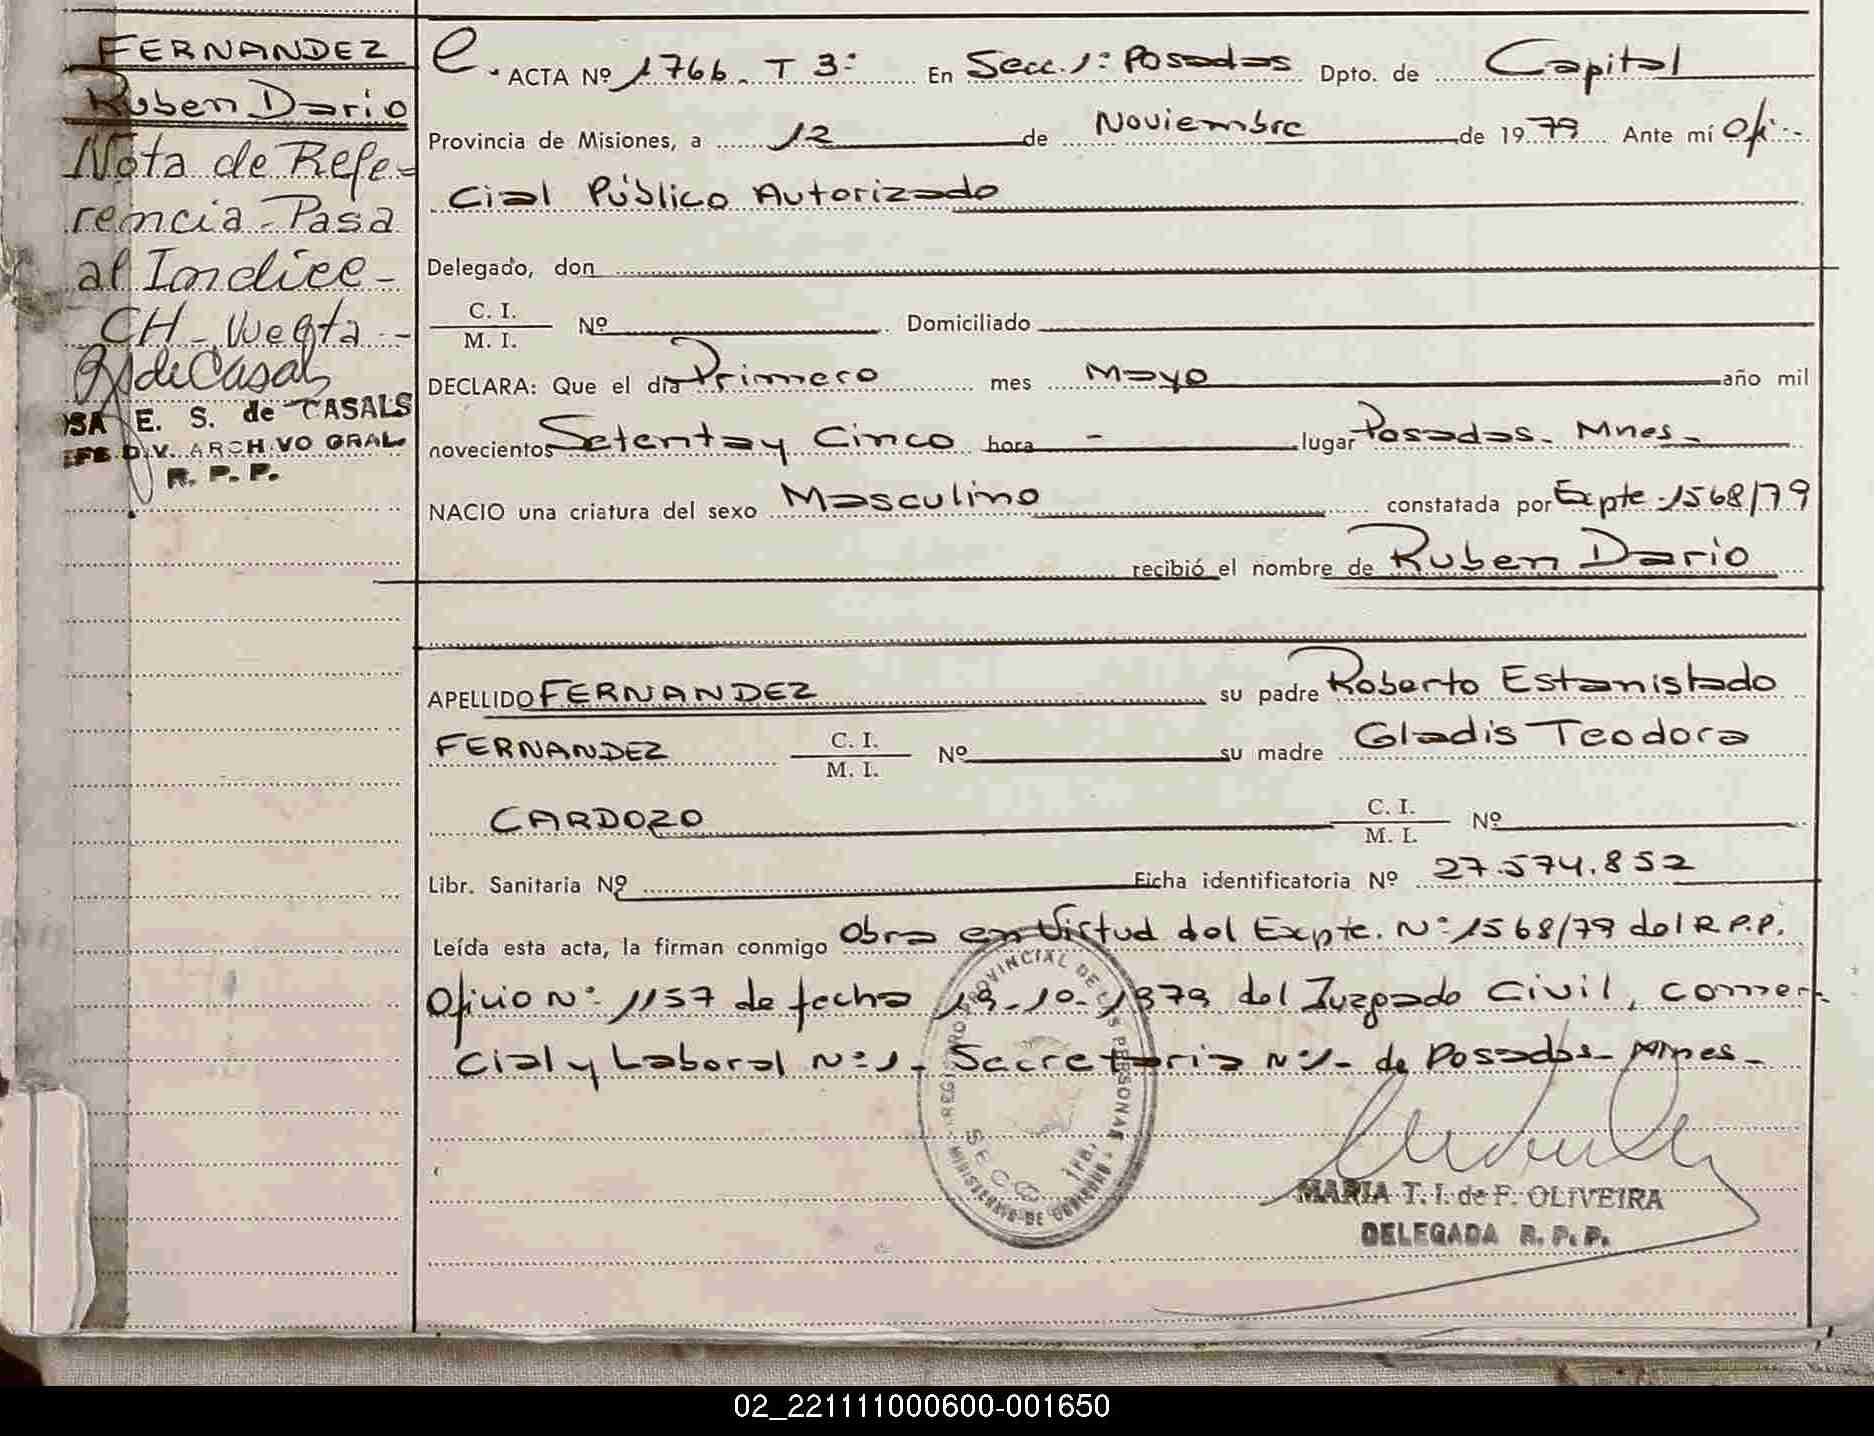 FERNANDEZ
Ruben Dario
Nota de Refe-
rencia - Pasa
al Indice -
CH - Vuelta -
de Casals
OSA E. S. de CASALS
EFE DIV. ARCHIVO GRAL
R. P. P.
e. ACTA Nº 1766. T 3º En Secc. 1º Posadas Dpto. de Capital
Provincia de Misiones, a 12 de Noviembre de 1979 Ante mí Ofi-
cial Público Autorizado
Delegado, don
C. I.
M. I.
Nº Domiciliado
DECLARA: Que el día Primero mes Mayo año mil
novecientos Setenta y Cinco hora - lugar Posadas - Mnes -
NACIO una criatura del sexo Masculino constatada por Expte - 1568/79
recibió el nombre de Ruben Dario
APELLIDO FERNANDEZ su padre Roberto Estanislado
FERNANDEZ C. I. M. I. Nº su madre Gladis Teodora
CARDOZO C. I. M. I. Nº
Libr. Sanitaria Nº Ficha identificatoria Nº 27.574.852
Leída esta acta, la firman conmigo Obra en Virtud del Expte. Nº 1568/79 del R.P.P.
Oficio Nº 1157 de fecha 19-10-1979 del Juzgado Civil, Comer-
cial y Laboral Nº 1 - Secretaria Nº 1 - de Posadas - Mnes -
REGISTRO PROVINCIAL DE LAS PERSONAS
MINISTERIO DE GOBIERNO
SECC 1ra.
MARIA T. I. de F. OLIVEIRA
DELEGADA R. P. P.
02_221111000600-001650